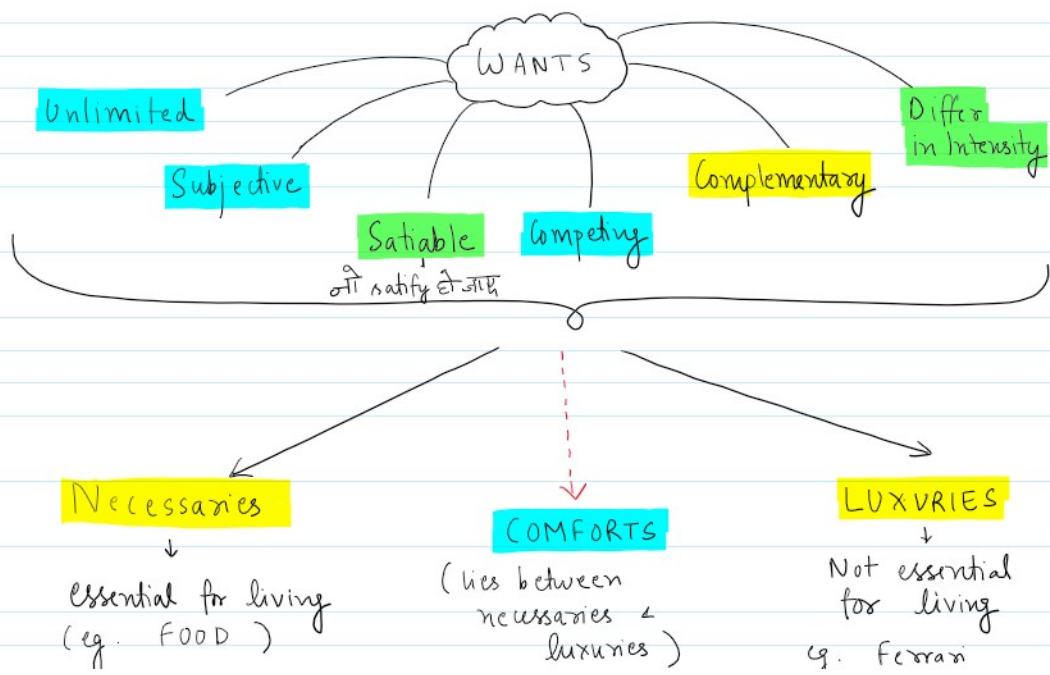 WANTS
Unlimited
Subjective
Satiable
जो satify हो जाए
Competing
Complementary
Differ
in Intensity
Necessaries
essential for living
(eg. FOOD)
COMFORTS
(lies between
necessaries &
luxuries)
LUXURIES
Not essential
for living
eg. Ferrari